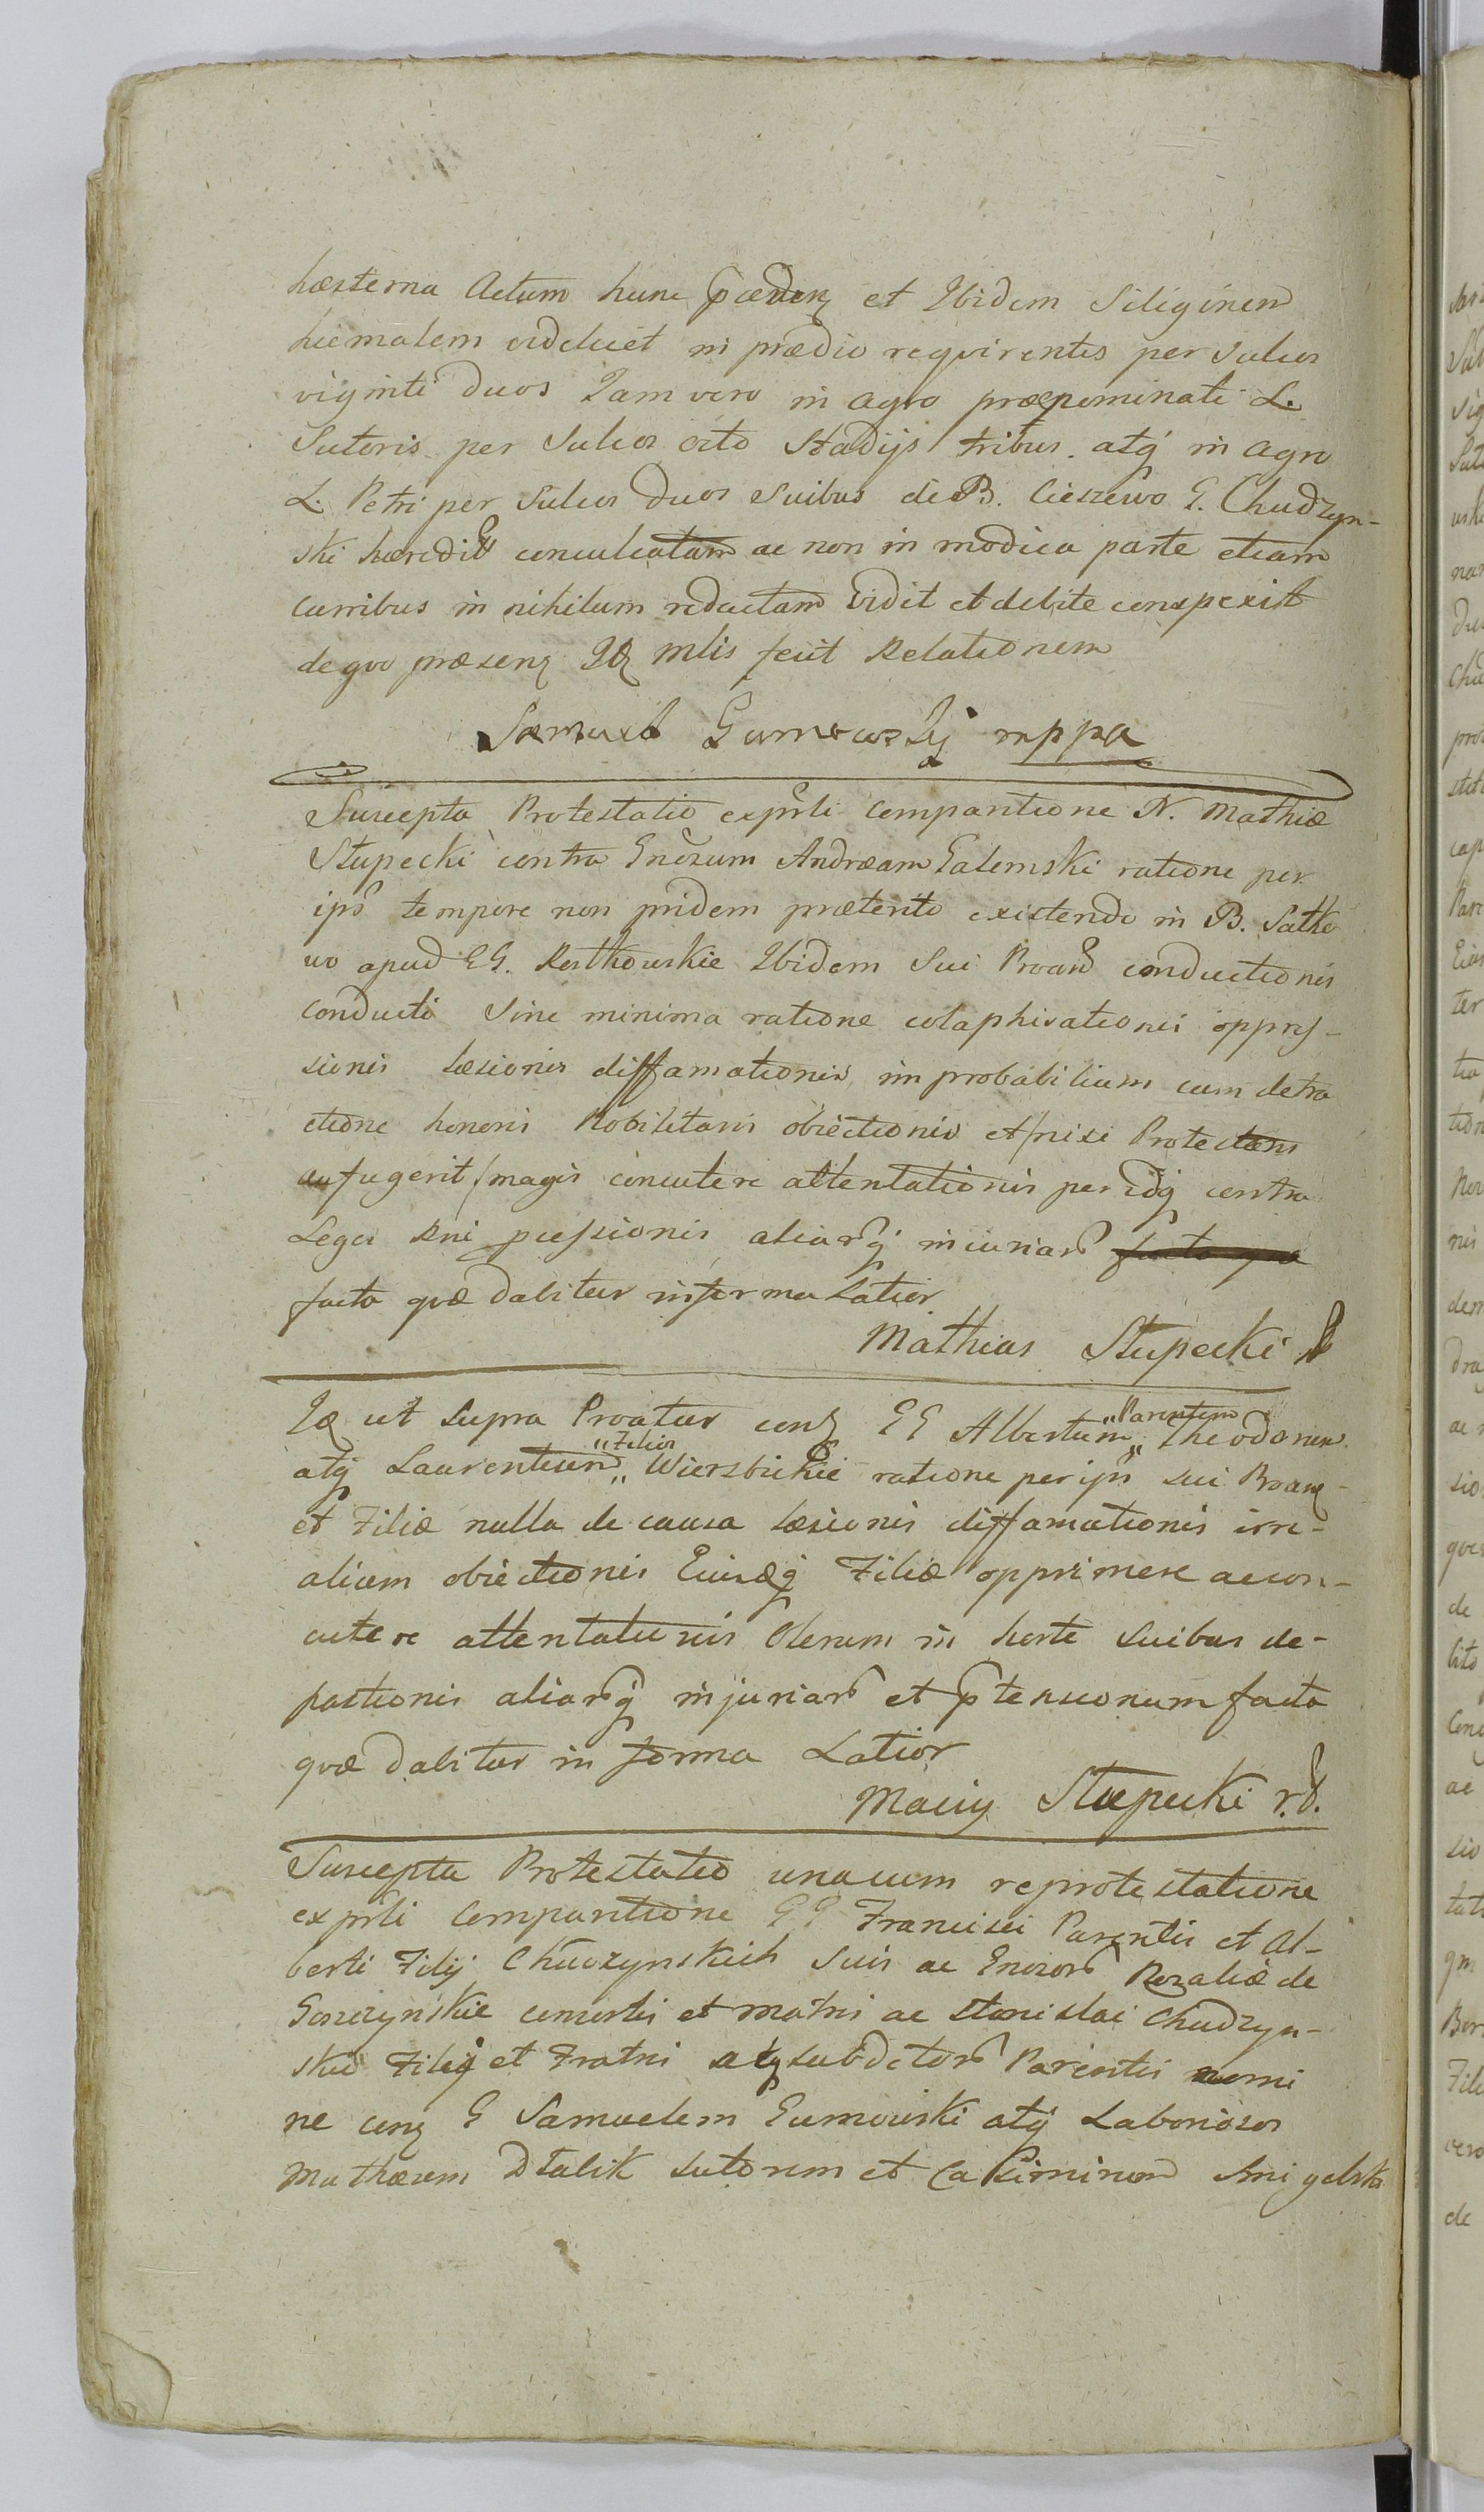 hæsterna Actum hunc præden et Ibidem Siliginem
hiemalem videlicet in prædio reqvirentis per Sulcos
viginti duos Iam vero in agro prænominati L.
Sutoris per Sulcos octo Stadijs tribus atq́ in agro
L. Petri per Sulcos duos Suibus de B. Cieszewo G. Chudzyn-
ski hæredit conculcatam ac non in modica parte etiam
curribus in nihilum redactam Vidit et debite conspexit
de qvo præsens Mlis fecit Relationem
Samuel Gumowskj mppa
Suscepta Protestatio exprli comparitione N. Mathiæ
Stupecki contra Gnosum Andræam Galemski ratione per
ips tempore non pridem præterito existendo in B. Sotko
wo apud GG. Rostkowskie Ibidem Sui Proans conductionis
conducti Sine minima ratione colaphisationis oppres-
sionis læsionis diffamationis improbabilium cum detra
ctione honoris Nobilitaris obiectionis et/nisi Protestans
aufugerit/magis concutere attentationis per idq́ contra
Leges Rni pcessionis aliarq́ iniuriar facto qva
facta qvæ dabitur in forma Latior
Mathias Stupecki
Id ut supra Proatur con GG Albertum „Parentem„ Theodorum
atq́ Laurentium „Filios„ Wierzbickie ratione per ips sui Proan-
et Filiæ nulla de causa læsionis diffamationis irre-
alium obiectionis Eiusdq́ Filiæ opprimere ac con-
cutere attentationis Olerum in horto Suibus de-
pastionis aliarq́ injuriar et ptensionum facta
qvæ dabitur in forma Latior
Maciy Stupecki
Suscepta Protestatio unacum reprotestatione
exprli Comparitione GG Francisci Parentis et Al-
berti Filij Chudzynskich Suis ac Gnosor Rozaliæ de
Gosczynskie consortis et matris ac Stanislai Chudzyn-
skie Filij et Fratri atq́ subditor Parentis nomi
ne con G Samuelem Gumowski atq́ Laboriosos
Mathæum Dłalik sutorem et Casimirum Smigelski